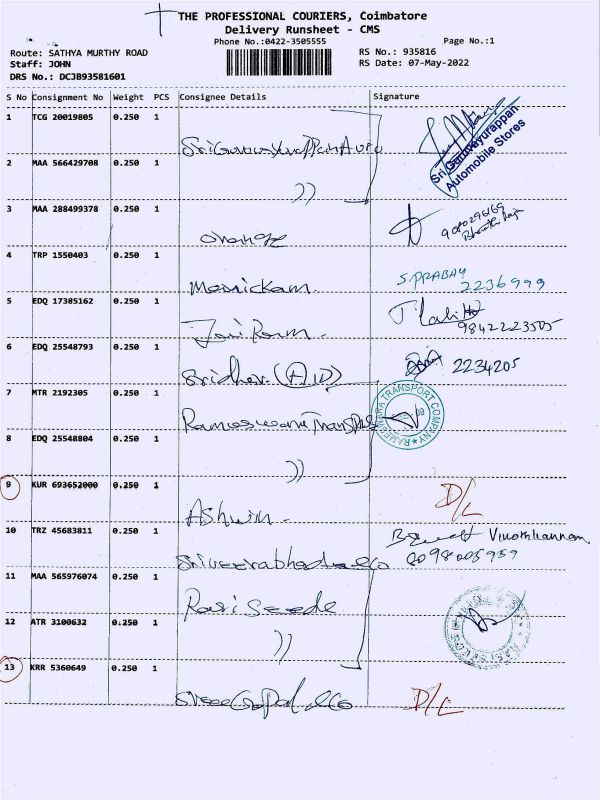 THE PROFESSIONAL COURIERS, Coimbatore
Delivery Runsheet - CMS
Phone No.:0422-3505555
Page No.:1
Route: SATHYA MURTHY ROAD
Staff: JOHN
DRS No.: DCJB93581601
RS No.: 935816
RS Date: 07-May-2022
S No Consignment No Weight PCS Consignee Details Signature
1 TCG 20019805 0.250 1
Sri Guruvayurappan Auto
Sri Guruvayurappan
Automobile Stores
2 MAA 566429708 0.250 1
))
3 MAA 288499378 0.250 1
Orange
4 TRP 1550403 0.250 1
Manickam
S.PRABAY
2236999
5 EDQ 17385162 0.250 1
Jai Ram
9842223505
6 EDQ 25548793 0.250 1
Sridher
2234205
7 MTR 2192305 0.250 1
Rameswara Transport
RAMESWARA TRANSPORT COMPANY
8 EDQ 25548804 0.250 1
))
9 KUR 693652000 0.250 1
Ashwin
D/L
10 TRZ 45683811 0.250 1
Sriveerabhadra & Co
Vinothkannam
11 MAA 565976074 0.250 1
Rasi Seeds
12 ATR 3100632 0.250 1
))
13 KRR 5360649 0.250 1
Sree Gopal & Co
D/L